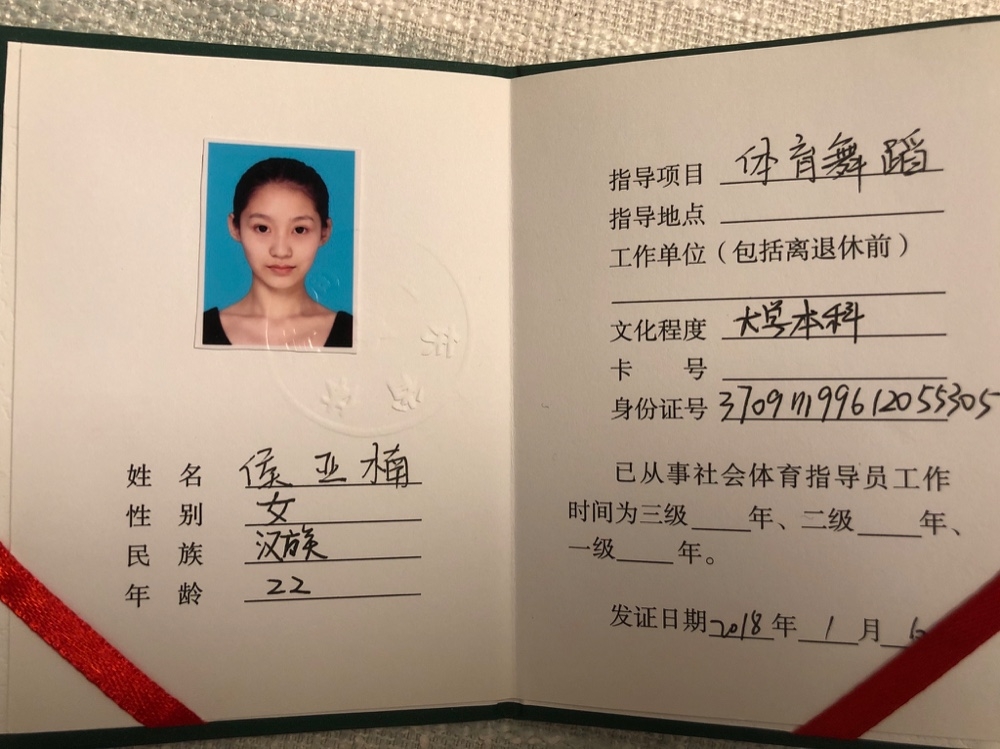 姓 名 侯亚楠
性 别 女
民 族 汉族
年 龄 22
指导项目 体育舞蹈
指导地点
工作单位（包括离退休前）
文化程度 大学本科
卡 号
身份证号 370911199612055305
已从事社会体育指导员工作
时间为三级____年、二级____年、
一级____年。
发证日期2018年1月6